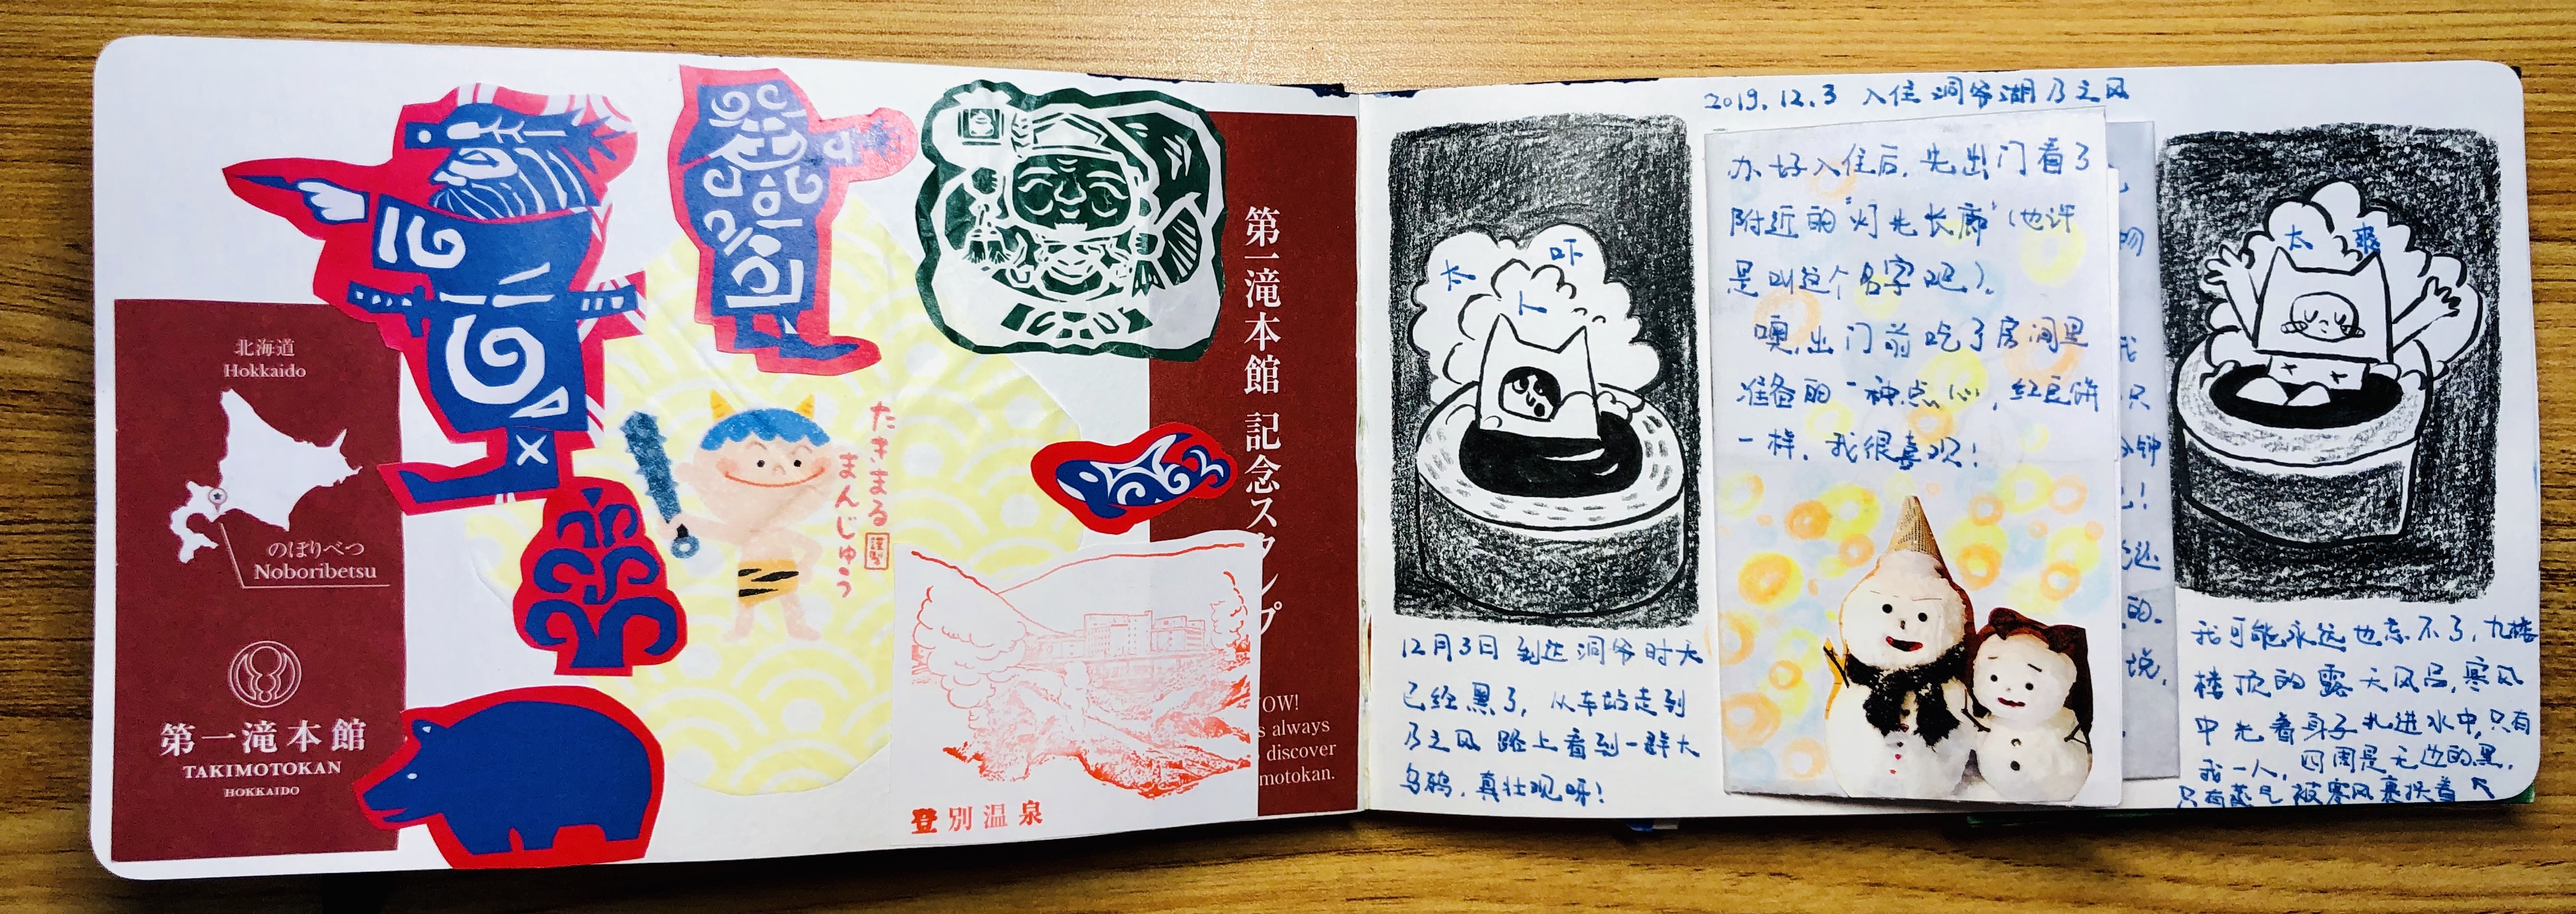 北海道
Hokkaido
のぼりべつ
Noboribetsu
第一滝本館
TAKIMOTOKAN
HOKKAIDO
たきまる
まんじゅう
謹製
第一滝本館 記念スタンプ
OW!
s always
discover
motokan.
登別温泉
2019.12.3 入住洞爷湖乃之风
太
吓
人
12月3日到达洞爷时天
已经黑了，从车站走到
乃之风路上看到一群大
乌鸦，真壮观呀！
办好入住后，先出门看了
附近的“灯光长廊”（也许
是叫这个名字吧）。
噢，出门前吃了房间里
准备的一种点心，红豆饼
一样，我很喜欢！
我
只
钟
！
还
的。
说，
太 爽
我可能永远也忘不了，九楼
楼顶的露天风吕，寒风
中光着身子扎进水中，只有
我一人，四周是无边的黑，
只有蒸气被寒风裹挟着